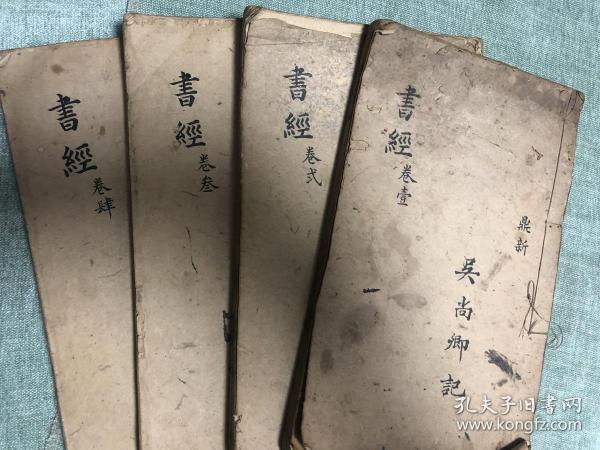 書經
卷肆
書經
卷叁
書經
卷弍
書經
卷壹
鼎新
吴尚卿記
孔夫子旧書网
www.kongfz.com